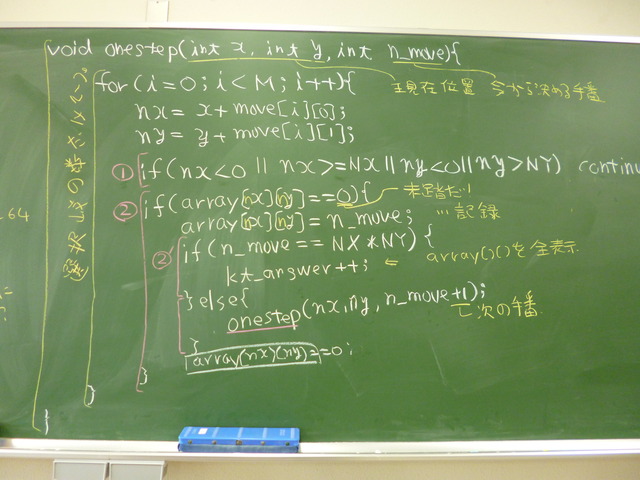 void onestep(int x, int y, int n_move){
for(i=0; i<M; i++){
現在位置 今から決める手番
nx= x+move[i][0];
ny= y+move[i][1];
① if(nx<0 || nx>=NX || ny<0 || ny>NY) continu
② if(array[nx][ny]==0){
未踏だ
array[nx][ny]= n_move;
記録
② if(n_move == NX*NY) {
kt_answer++; ← array()()を全表示
}else{
onestep(nx, ny, n_move+1);
次の手番
}
array(nx)(ny)==0;
}
}
}
64